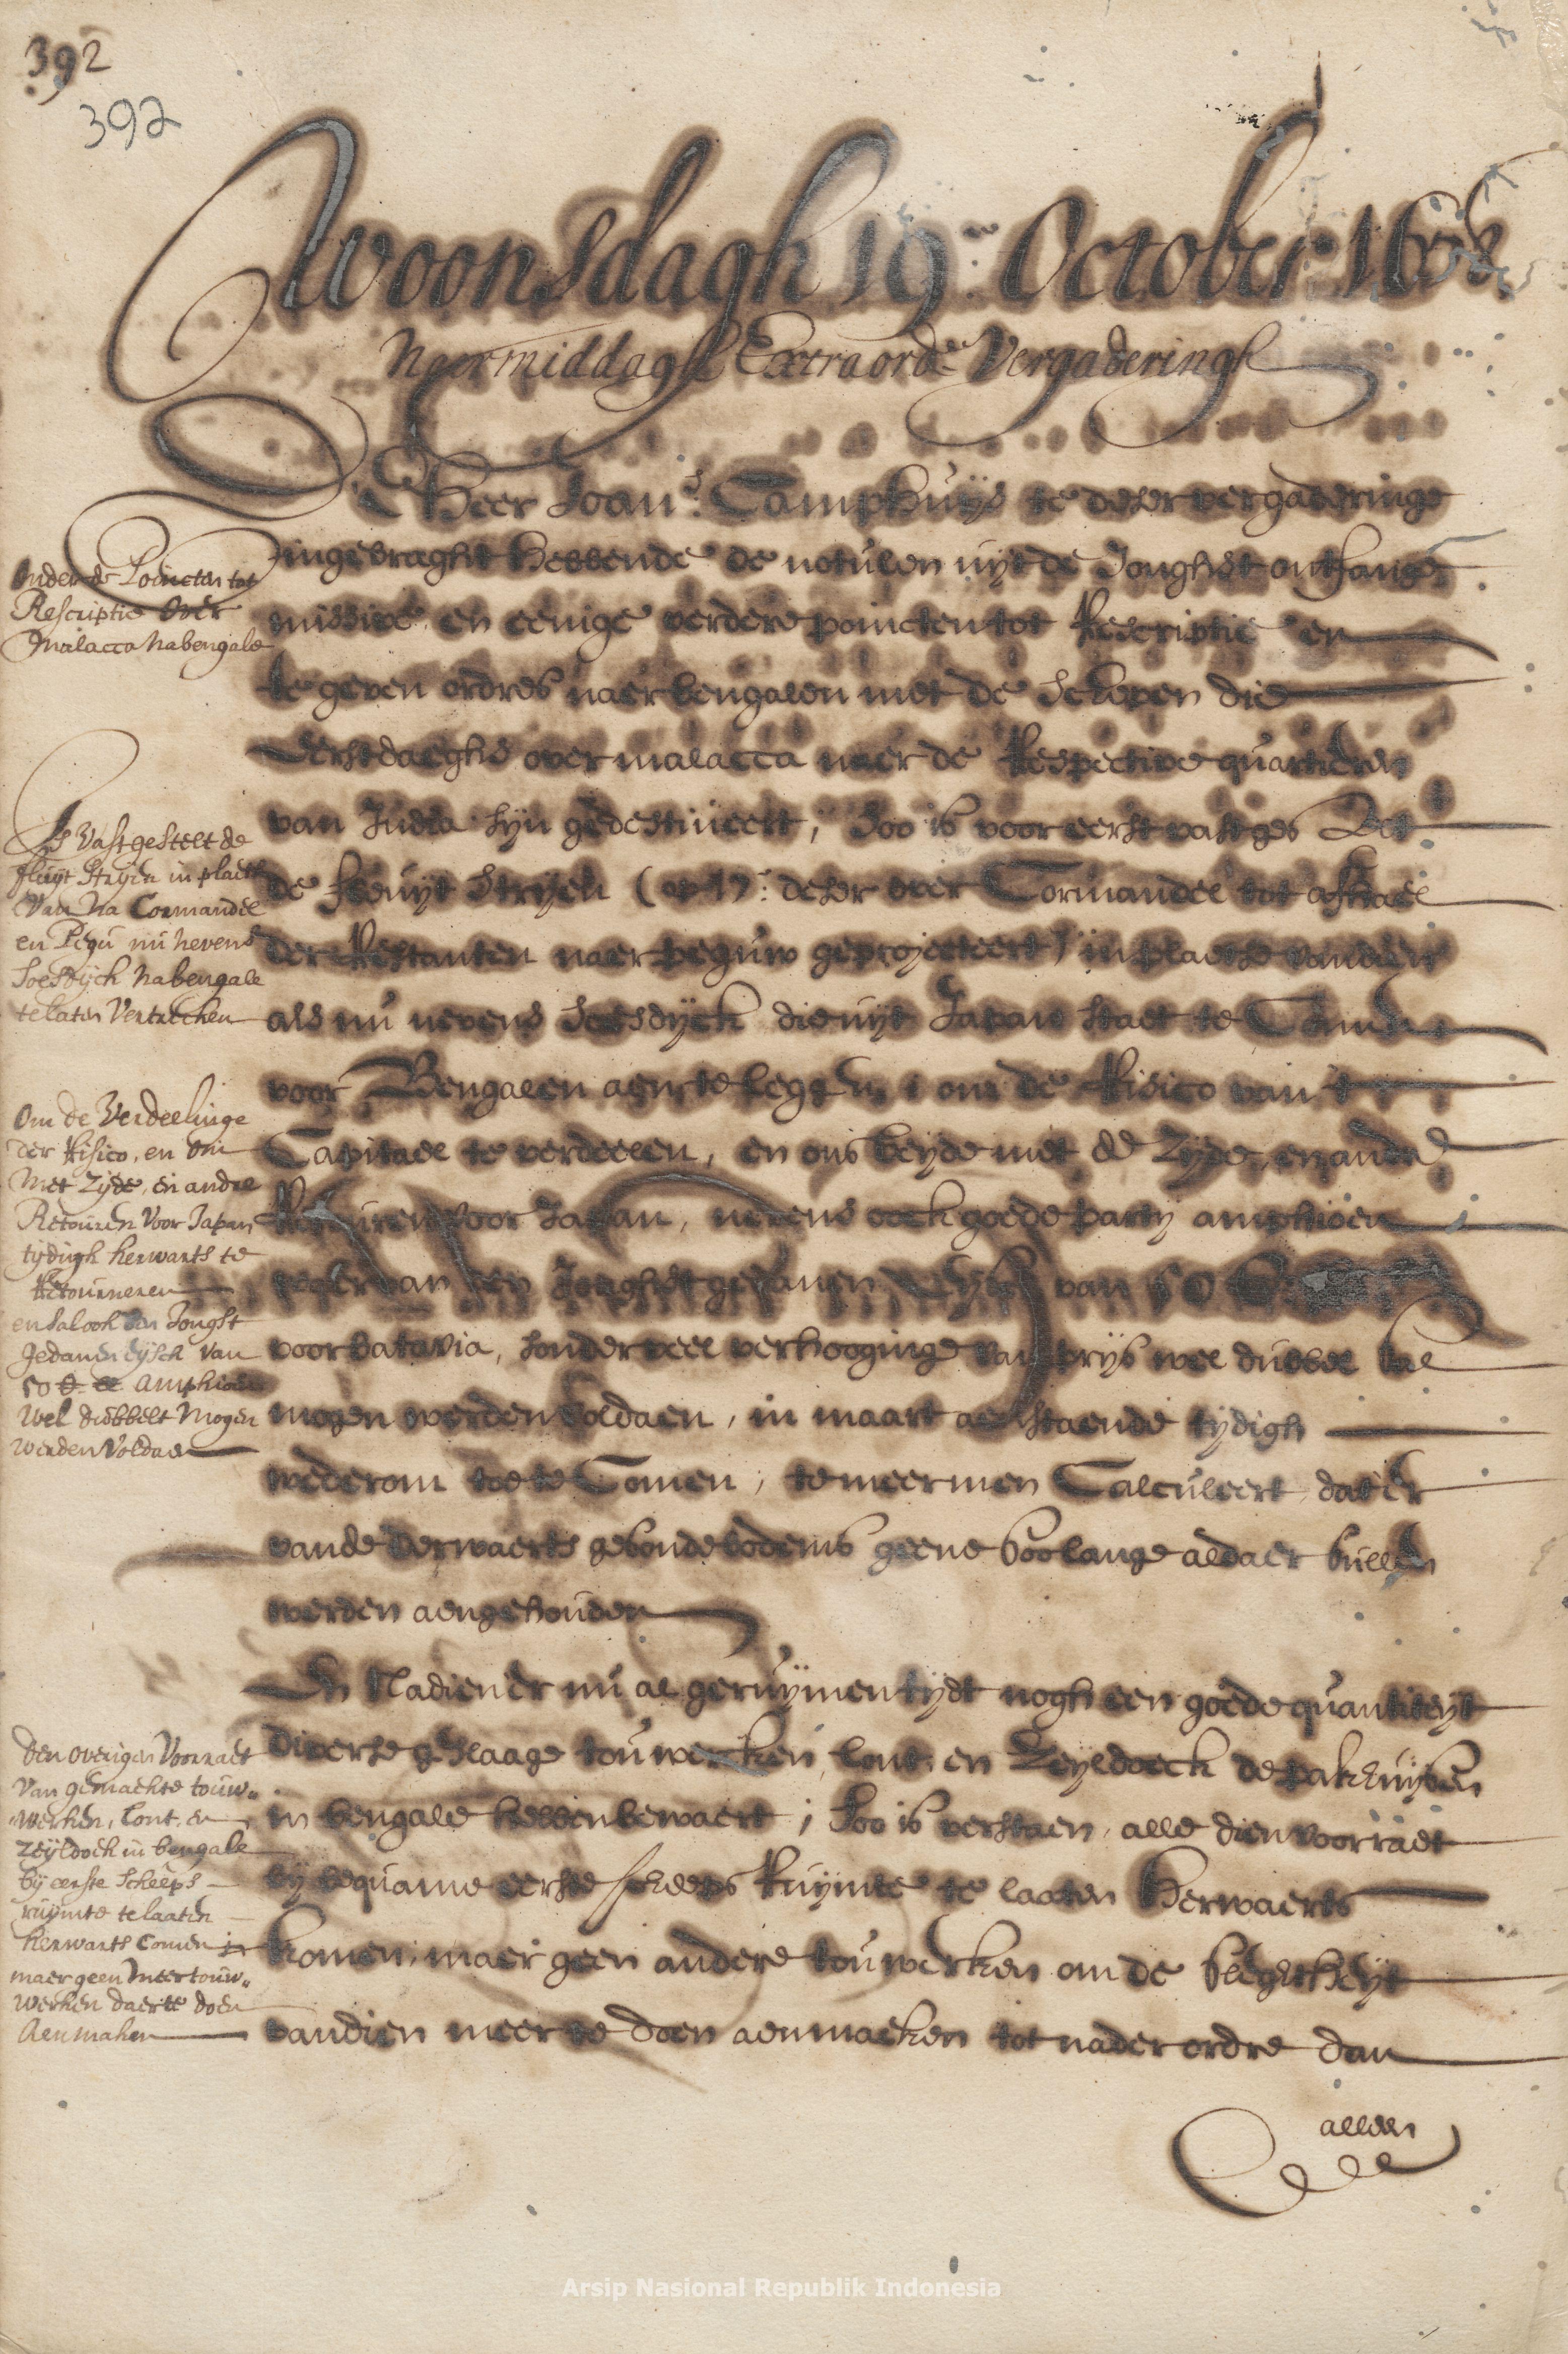 392
392
Woonsdagh 19en October 16
Naermiddaghs Extraorde Vergaderingh
D'Heer Joans. Camphuijs te deser vergaderinge
ingebraght hebbende de notulen uijt de Jonghst ontfange
missive en eenige verdere poincten tot Rescriptie en
te geven ordres naer bengalen met de schepen die
eerstdaeghs over malacca naer de Respective quartieren
van India sijn gedestineert, soo is voor eerst vastges
de fluijt Strijen (op 17: deser over Cormandel tot afhael
der Restanten naer peguw geprojecteert) in plaetse van dien
als nu nevens Soesdijck die uijt Japan staet te Comen
voor Bengalen aen te leggen, om de Risico van 't
Capitael te verdeelen, en om beijde met de Zijde, en andre
Retouren voor Japan, nevens oock goede partij amphioen
waer van den Jonghst gedanen Eijsch van 50
voor batavia, sonder veel verhooginge van prijs wel dubbel sal
mogen werden voldaen, in maart aenstaende tijdigh
wederom toe te Comen, te meer men Calculeert, dat er
vande derwaerts gesonde bodems geene soo lange aldaer sullen
werden aengehouden
En Nadien er nu al geruijmen tijdt nogh een goede quantiteijt
diverse geslaage touwerken, lont, en Zeijldoeck de pakhuijsen
in bengale hebben bewaert; soo is verstaen, alle dien voorraet
bij bequame eerste scheeps Ruijmte te laaten herwaerts
komen, maer geen andere touwerken om de slegtheijt
van dien meer te doen aenmaeken tot nader ordre dan
alleen
Onder de Poincten tot
Rescriptie Over
Malacca na bengale
Is Vastgestelt de
fluijt Strijen in plaets
Van Na Cormandel
en Pegu nu nevens
Soesdijck na bengale
te laten Vertrecken
Om de Verdeelinge
der Risico, en om
Met Zijde, en andre
Retouren Voor Japan
tijdigh herwarts te
Retourneren
en sal ook den Jonghst
gedanen eijsch van
50 amphioen
Wel dubbelt Mogen
werden Voldaen
Den overigen Voorraet
Van gemaekte touw„
werken, Lont, en
Zeijldoek in bengale
bij eerste Scheeps
ruijmte te laaten
herwarts Comen
maer geen meer touw„
werken daer te doen
Aenmaken
Arsip Nasional Republik Indonesia